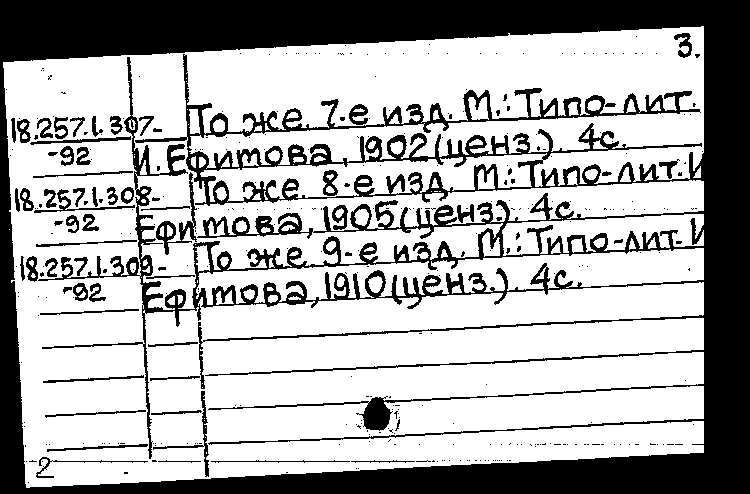 3.
18.257.1.307- То же. 7-е изд. М.: Типо-лит.
-92 И. Ефитова, 1902 (ценз.). 4с.
18.257.1.308- То же. 8-е изд. М.: Типо-лит. И
-92 Ефитова, 1905 (ценз.). 4с.
18.257.1.309- То же. 9-е изд. М.: Типо-лит. И
-92 Ефитова, 1910 (ценз.). 4с.
2